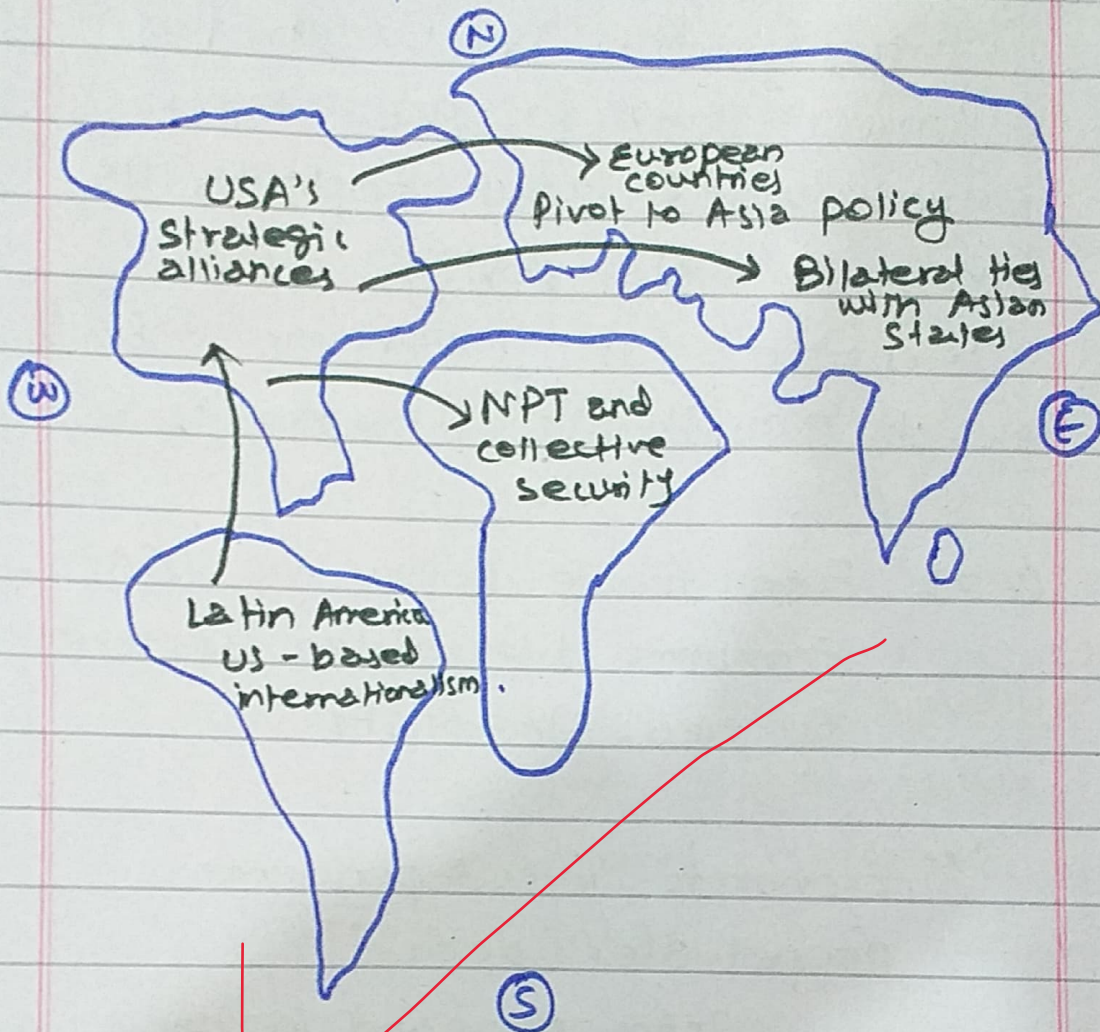 N
USA's
strategic
alliances
European
countries
Pivot to Asia policy
Bilateral ties
with Asian
States
W
E
NPT and
collective
security
Latin America
US - based
internationalism.
S